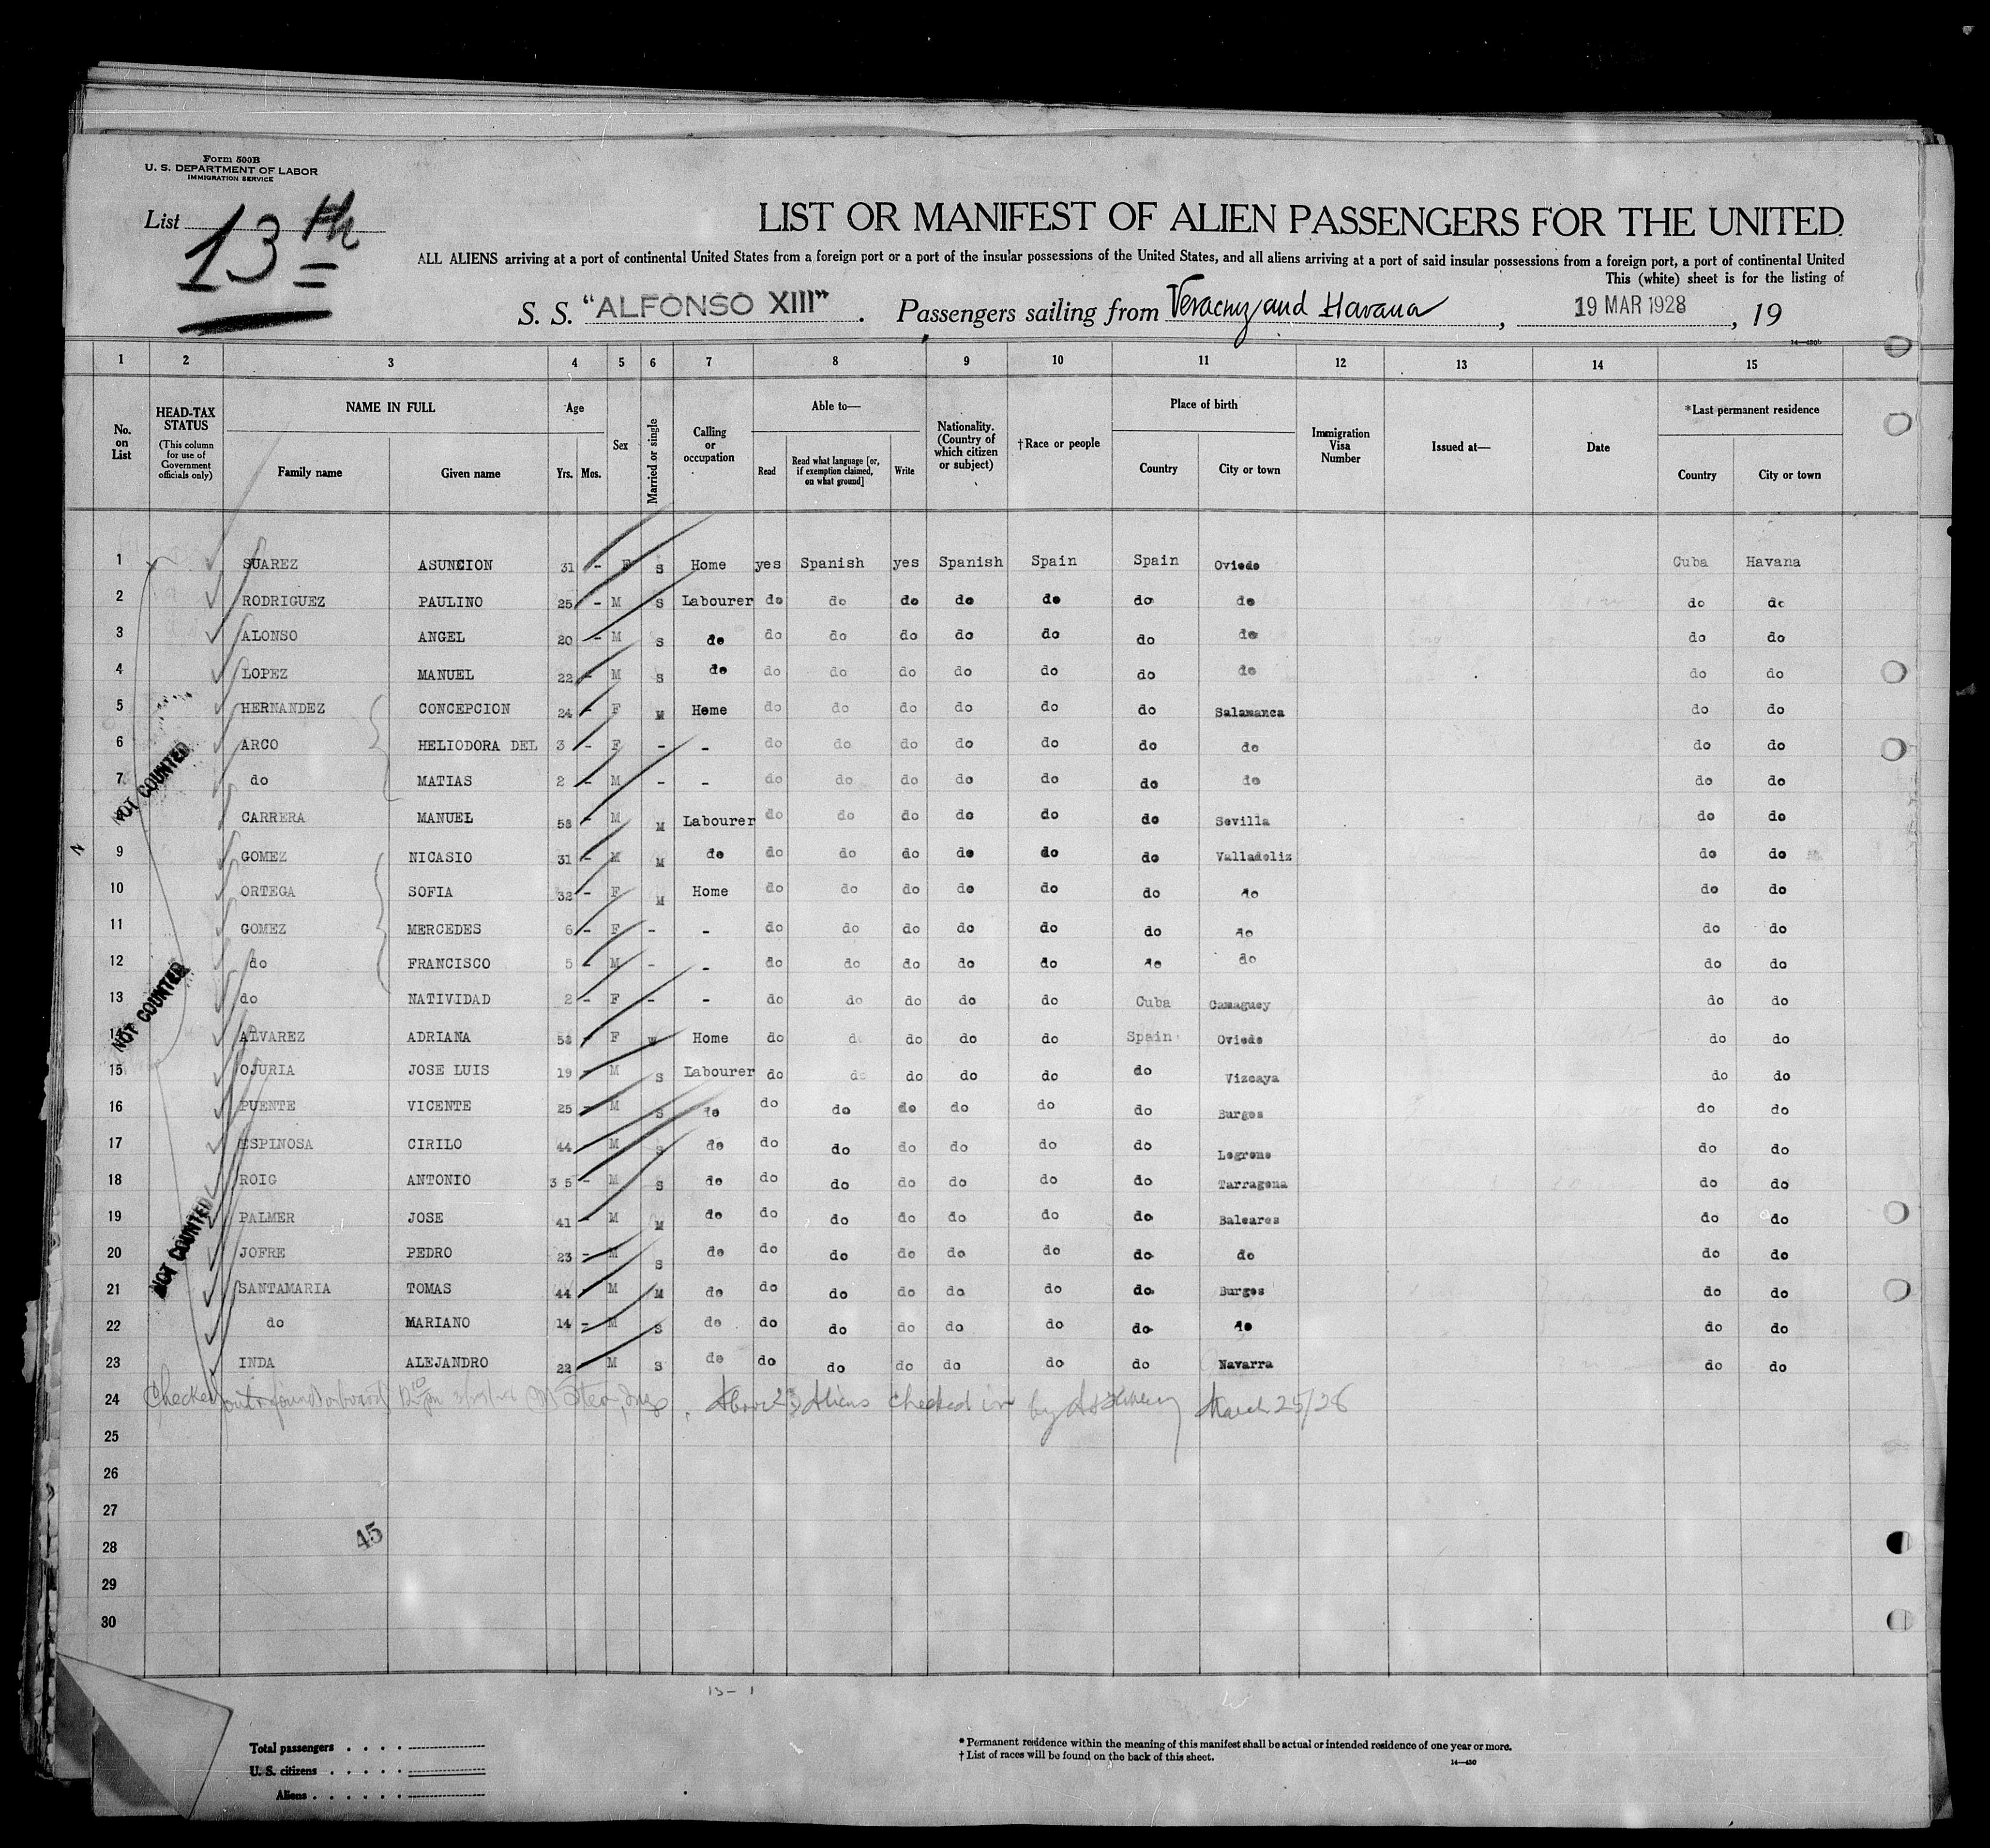 Form 500B
U. S. DEPARTMENT OF LABOR
IMMIGRATION SERVICE
List 13th
LIST OR MANIFEST OF ALIEN PASSENGERS FOR THE UNITED
ALL ALIENS arriving at a port of continental United States from a foreign port or a port of the insular possessions of the United States, and all aliens arriving at a port of said insular possessions from a foreign port, a port of continental United
This (white) sheet is for the listing of
S. S. "ALFONSO XIII". Passengers sailing from Veracruz and Havana, 19 MAR 1928, 19
14—430b
1 2 3 4 5 6 7 8 9 10 11 12 13 14 15
No. on List
HEAD-TAX STATUS (This column for use of Government officials only)
NAME IN FULL Family name Given name
Age Yrs. Mos.
Sex
Married or single
Calling or occupation
Able to— Read Read what language [or, if exemption claimed, on what ground] Write
Nationality. (Country of which citizen or subject)
†Race or people
Place of birth Country City or town
Immigration Visa Number
Issued at—
Date
*Last permanent residence Country City or town
1 SUAREZ ASUNCION 31 - F S Home yes Spanish yes Spanish Spain Spain Oviedo Cuba Havana
2 RODRIGUEZ PAULINO 25 - M S Labourer do do do do do do do do do
3 ALONSO ANGEL 20 - M S do do do do do do do do do do
4 LOPEZ MANUEL 22 - M S do do do do do do do do do do
5 HERNANDEZ CONCEPCION 24 - F M Home do do do do do do Salamanca do do
6 ARCO HELIODORA DEL 3 - F - - do do do do do do do do do
7 do MATIAS 2 - M - - do do do do do do do do do
CARRERA MANUEL 58 - M M Labourer do do do do do do Sevilla do do
9 GOMEZ NICASIO 31 - M M do do do do do do do Valladoliz do do
10 ORTEGA SOFIA 32 - F M Home do do do do do do do do do
11 GOMEZ MERCEDES 6 - F - - do do do do do do do do do
12 do FRANCISCO 5 - M - - do do do do do do do do do
13 do NATIVIDAD 2 - F - - do do do do do Cuba Camaguey do do
14 ALVAREZ ADRIANA 58 - F W Home do do do do do Spain Oviedo do do
15 OJURIA JOSE LUIS 19 - M S Labourer do do do do do do Vizcaya do do
16 PUENTE VICENTE 25 - M S do do do do do do do Burgos do do
17 ESPINOSA CIRILO 44 - M S do do do do do do do Logrono do do
18 ROIG ANTONIO 35 - M S do do do do do do do Tarragona do do
19 PALMER JOSE 41 - M M do do do do do do do Baleares do do
20 JOFRE PEDRO 23 - M S do do do do do do do do do do
21 SANTAMARIA TOMAS 44 - M M do do do do do do do Burgos do do
22 do MARIANO 14 - M S do do do do do do do do do do
23 INDA ALEJANDRO 22 - M S do do do do do do do Navarra do do
24 Checked out & found onboard Above 23 Aliens checked in by March 25/28
25
26
27
28
29
30
NOT COUNTED
NOT COUNTED
NOT COUNTED
45
13-1
Total passengers . . . .
U. S. citizens . . . . .
Aliens . . . . . .
* Permanent residence within the meaning of this manifest shall be actual or intended residence of one year or more.
† List of races will be found on the back of this sheet.
14—430